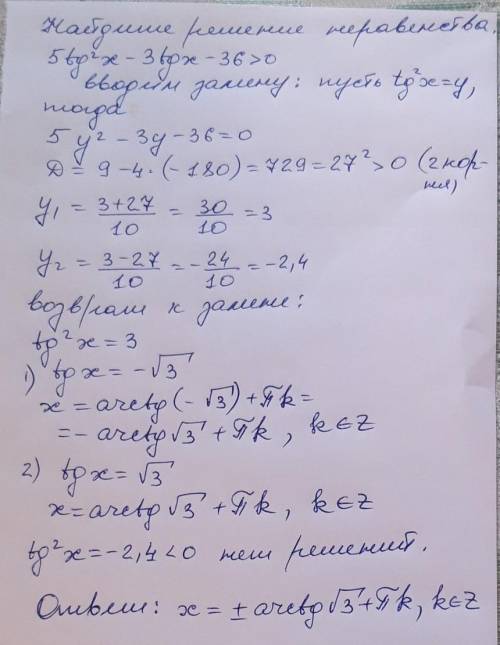 Найдите решение неравенства.
5tg²x - 3tgx - 36 > 0
вводим замену: пусть tg²x = y,
тогда
5y² - 3y - 36 = 0
D = 9 - 4·(-180) = 729 = 27² > 0 (2 кор-
ня)
y₁ = (3+27)/10 = 30/10 = 3
y₂ = (3-27)/10 = -24/10 = -2,4
возврат к замене:
tg²x = 3
1) tgx = -√3
x = arctg(-√3) + πk =
= - arctg√3 + πk, k∈Z
2) tgx = √3
x = arctg√3 + πk, k∈Z
tg²x = -2,4 < 0 нет решений.
Ответ: x = ± arctg√3 + πk, k∈Z